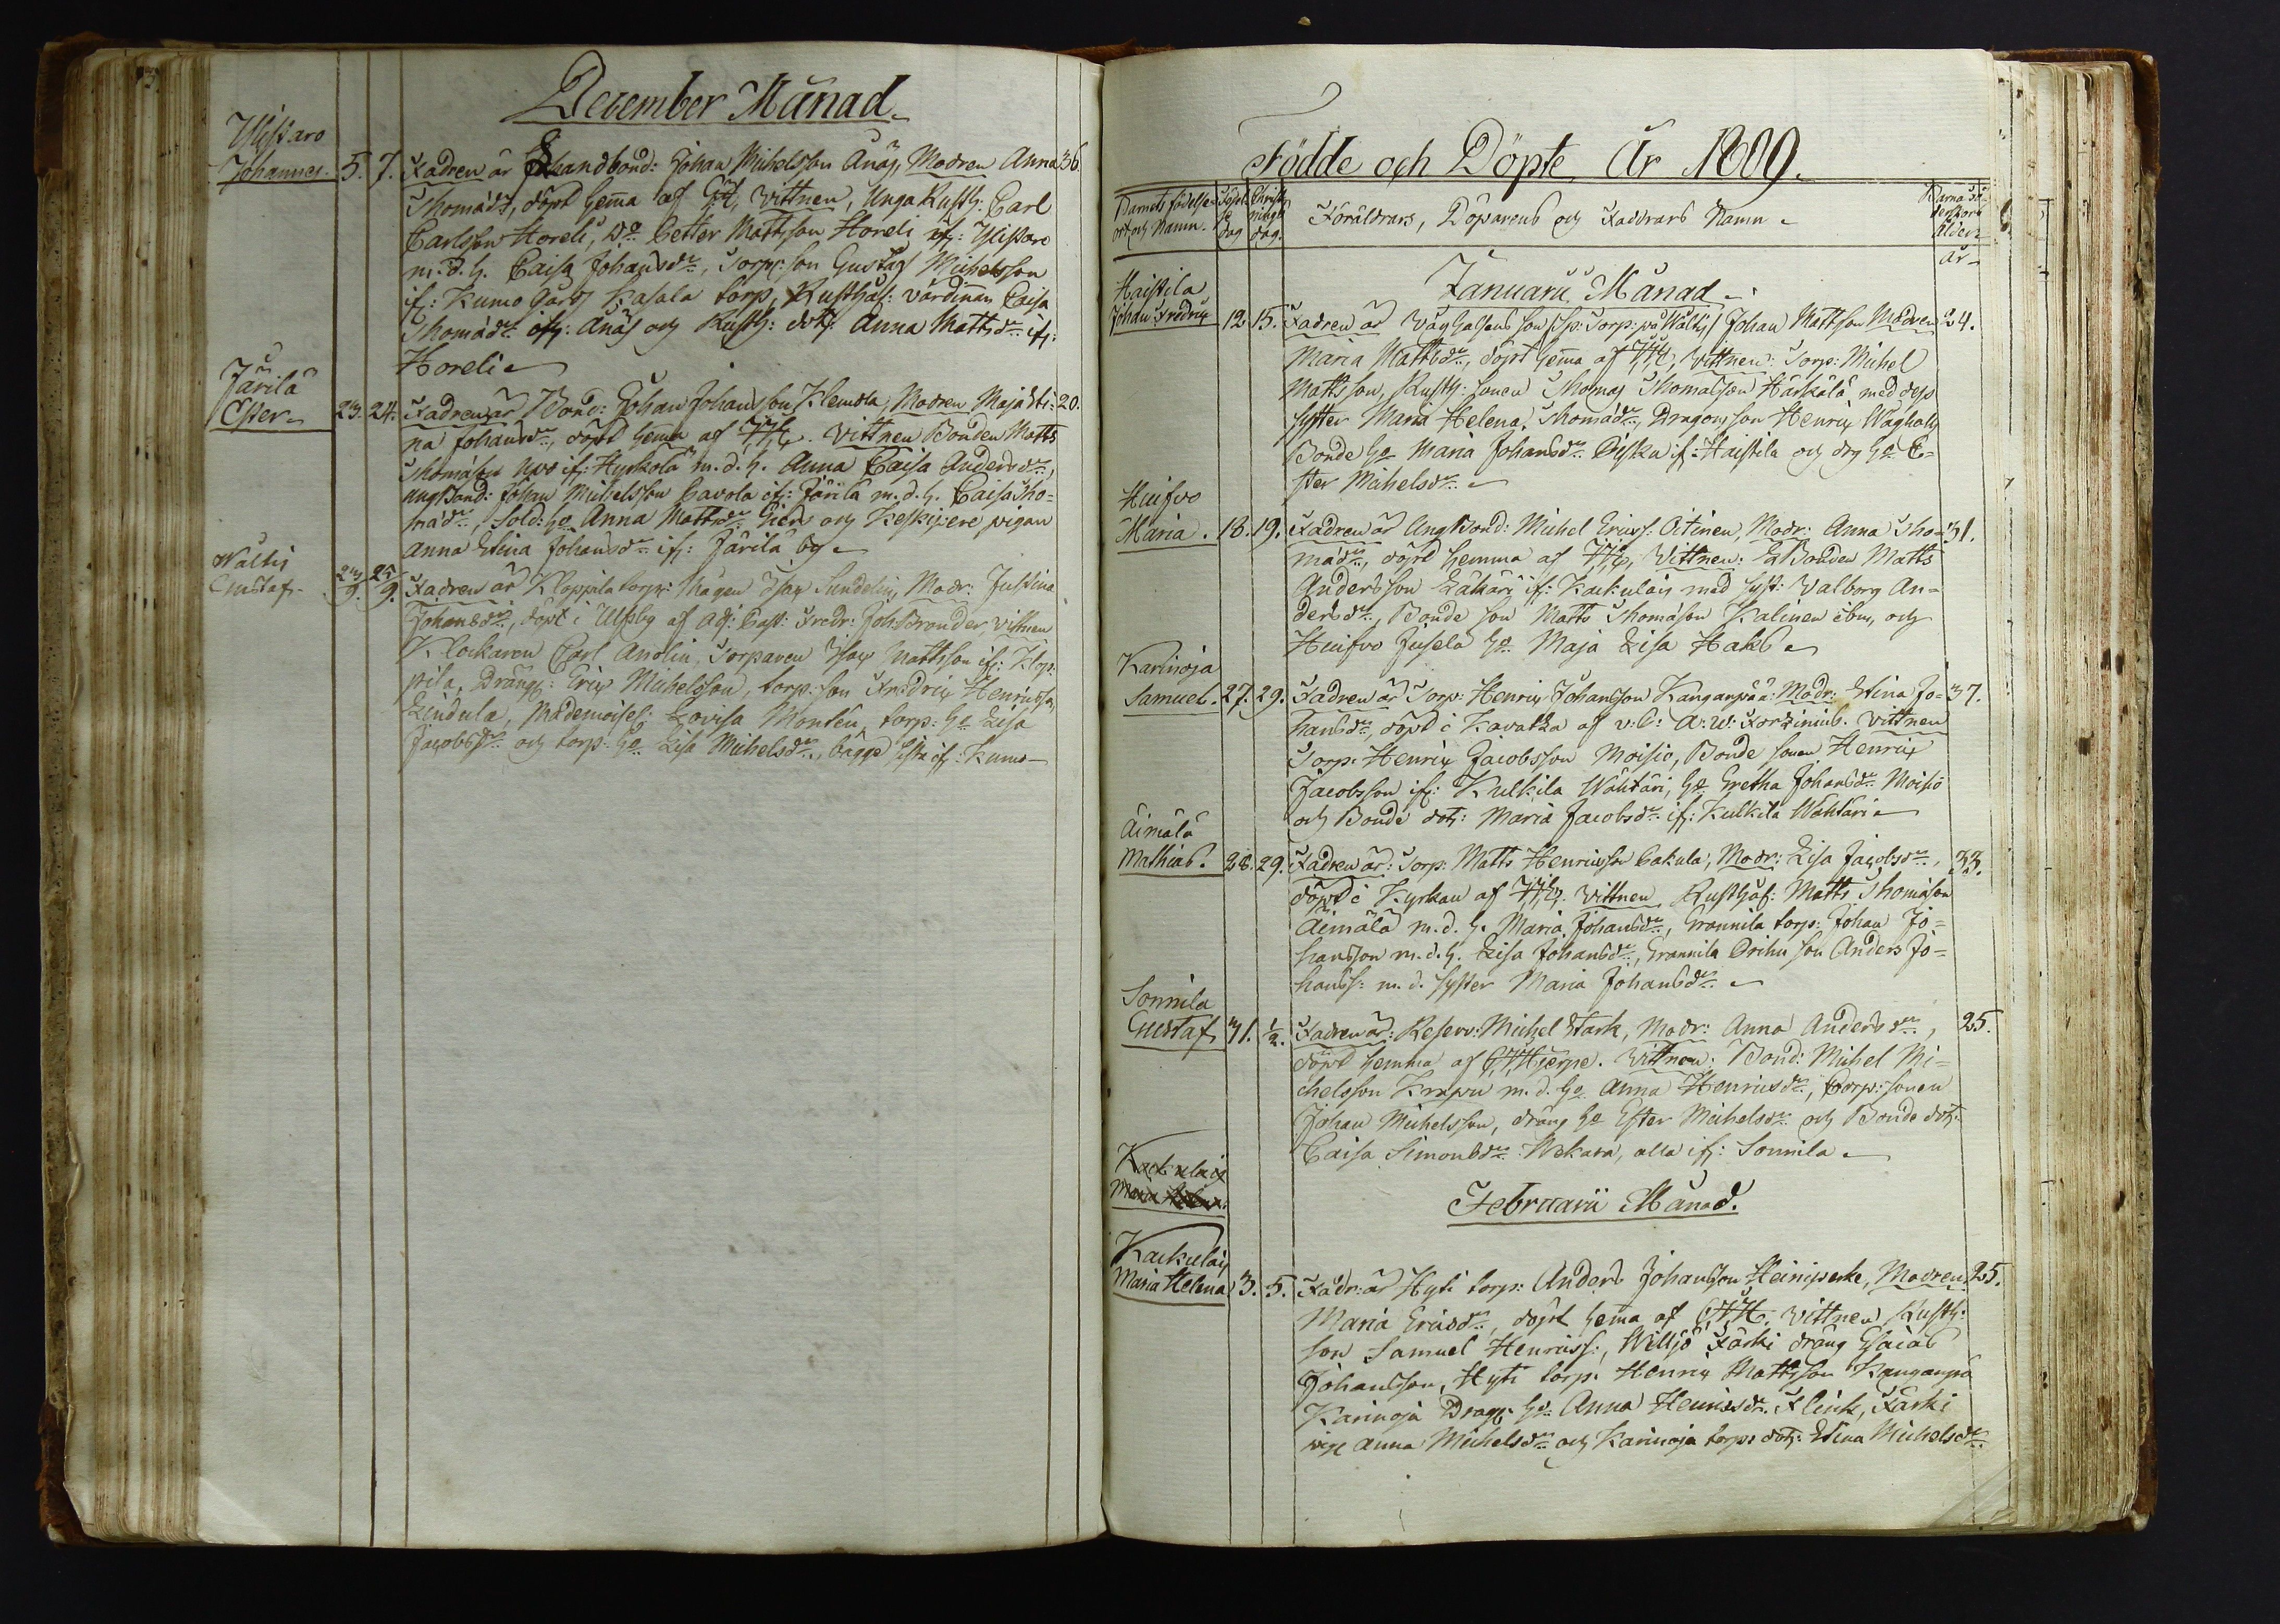 December Månad
Ylistaro
Johannes. 5. 7. Fadren är handbond: Johan Michelsson Anäs, Modren Anna 36.
Thomädr, döpt hema af vittnen, Unga Rusth: Carl
Carlsson Horeli, Petter Mattsson Horeli if: Ylistaro
m. d. h. Caisa Johansdr, Torp: son Gustaf Michelsson
if: Kumo Gård Kasala torp, Rusthåf: värdinnan Caisa
Thomädr if: Anäs och Rusth: dotr: Anna Mattsdr if:
Horeli
Järilä
Ester 23. 24. Fadren är Bond: Johan Johansson Klemola, Modren Maja Sti= 20.
na Johansdr, döpt hema af vittnen Bonden Matts
Thomäson if: Hyrkölä m. d. h. Anna Caisa Andersdr,
ungBond: Johan Michelsson Pavola if: Järilä m. d. h. Caisa Tho=
mädr, Sold: ho Anna Mattsdr och Keskipere pigan
Anna Stina Johansdr if: Järilä by
Wältis
Gustaf 23/9. 25/9. Fadren är Kloppila torp: Mågen Isac Sundelin, Modr: Justina
Johansdr, döpt i Ulfsby af Adj: Past: Fredr: Joh: Bronder, vittnen
Klockaren Carl Anolin, Torparen Isac Mattsson if: Klop=
pila, Dräng: Eric Michelsson, torp: son Fredric Henricsson
Lindula, Mademoisel: Lovisa Montén, torp: ho Lisa
Jacobsdr och torp: ho Lisa Michelsdr, bägge sista if: Kumo
Födde och Döpte År 1809.
Barnets födelse= Födel= Christ=
ort och Namn. se dag nings dag. Föräldrars, Döparens och Faddrars Namn Barnaföderskors Ålder
år
Januarii Månad
Haistila
Johan Fredric 12. 15. Fadren är son Torp: på Wältis Johan Mattsson Modren 24.
Maria Mattsdr, döpt hema af vittnen: Torp: Michel
Mattsson, Rusth: sonen Thomas Thomasson Härkälä med dess
syster Maria Helena Thomädr, Dragon son Henric Waghals
Bonde ho Maria Johansdr if: Haistila och drg ho E=
ster Michelsdr
Huifvo
Maria. 18. 19. Fadren är UngBond: Michel Ericss: Oitinen, Modr: Anna Tho= 31.
mädr, döpt hemma af vittnen: Bonden Matts
Andersson if: Kackulais med syst: Valborg An=
dersdr, Bonde son Matts Thomäson Kalinen ibm, och
Huifvo Jusela ho Maja Lisa
Karinoja
Samuel. 27. 29. Fadren är Torp: Henric Johansson Kanganpää: Modr: Stina Jo= 37.
hansdr, döpt i Kavatka af v: P: A: W: Forzinius. vittnen
Torp: Henric Jacobsson Moisio, Bonde sonen Henric
Jacobsson if: Kulkila Wähtäri, ho Gretha Johansdr Moisio
och Bonde dotr: Maria Jacobsdr if: Kulkila Wähtäri
Äimälä
Mathias. 28. 29. Fadren är: Torp: Matts Henricsson Pakula, Modr: Lisa Jacobsdr, 33.
döpt i Kyrkan af vittnen Rusthåf: Matts Thomäson
Äimälä m. d. h. Maria Johansdr, Grannila torp: Johan Jo=
hansson m. d. h. Lisa Johansdr, Grannila son Anders Jo=
hanss: m. d. syster Maria Johansdr
Sonnila
Gustaf 31. 1/2. Fadren är: Reserv: Michel Stark, Modr: Anna Andersdr, 25.
döpt hemma af Hjerpe. vittnen: Bond: Michel Mi=
chelsson Krapu m. d. ho Anna Henricsdr, Torp: sonen
Johan Michelsson, dräng ho Ester Michelsdr och Bonde dotr:
Caisa Simonsdr Wekara, alla if: Sonnila
Kackulais
Maria
Februarii Månad.
Kackulais
Maria Helena 3. 5. Fadr: är Hyti torp: Anders Johansson Heinipecke, Modren 25.
Maria Ericsdr, döpt hema af vittnen Rusth:
son Samuel Henricss:, Willjö Färki dräng Esaias
Johansson, Hyti torp: Henric Mattsson Kanganpä
Karinoja Drag: ho Anna Henricsdr Flink, Färki
pig: Anna Michelsdr och Karinoja torp: dotr: Stina Michelsdr